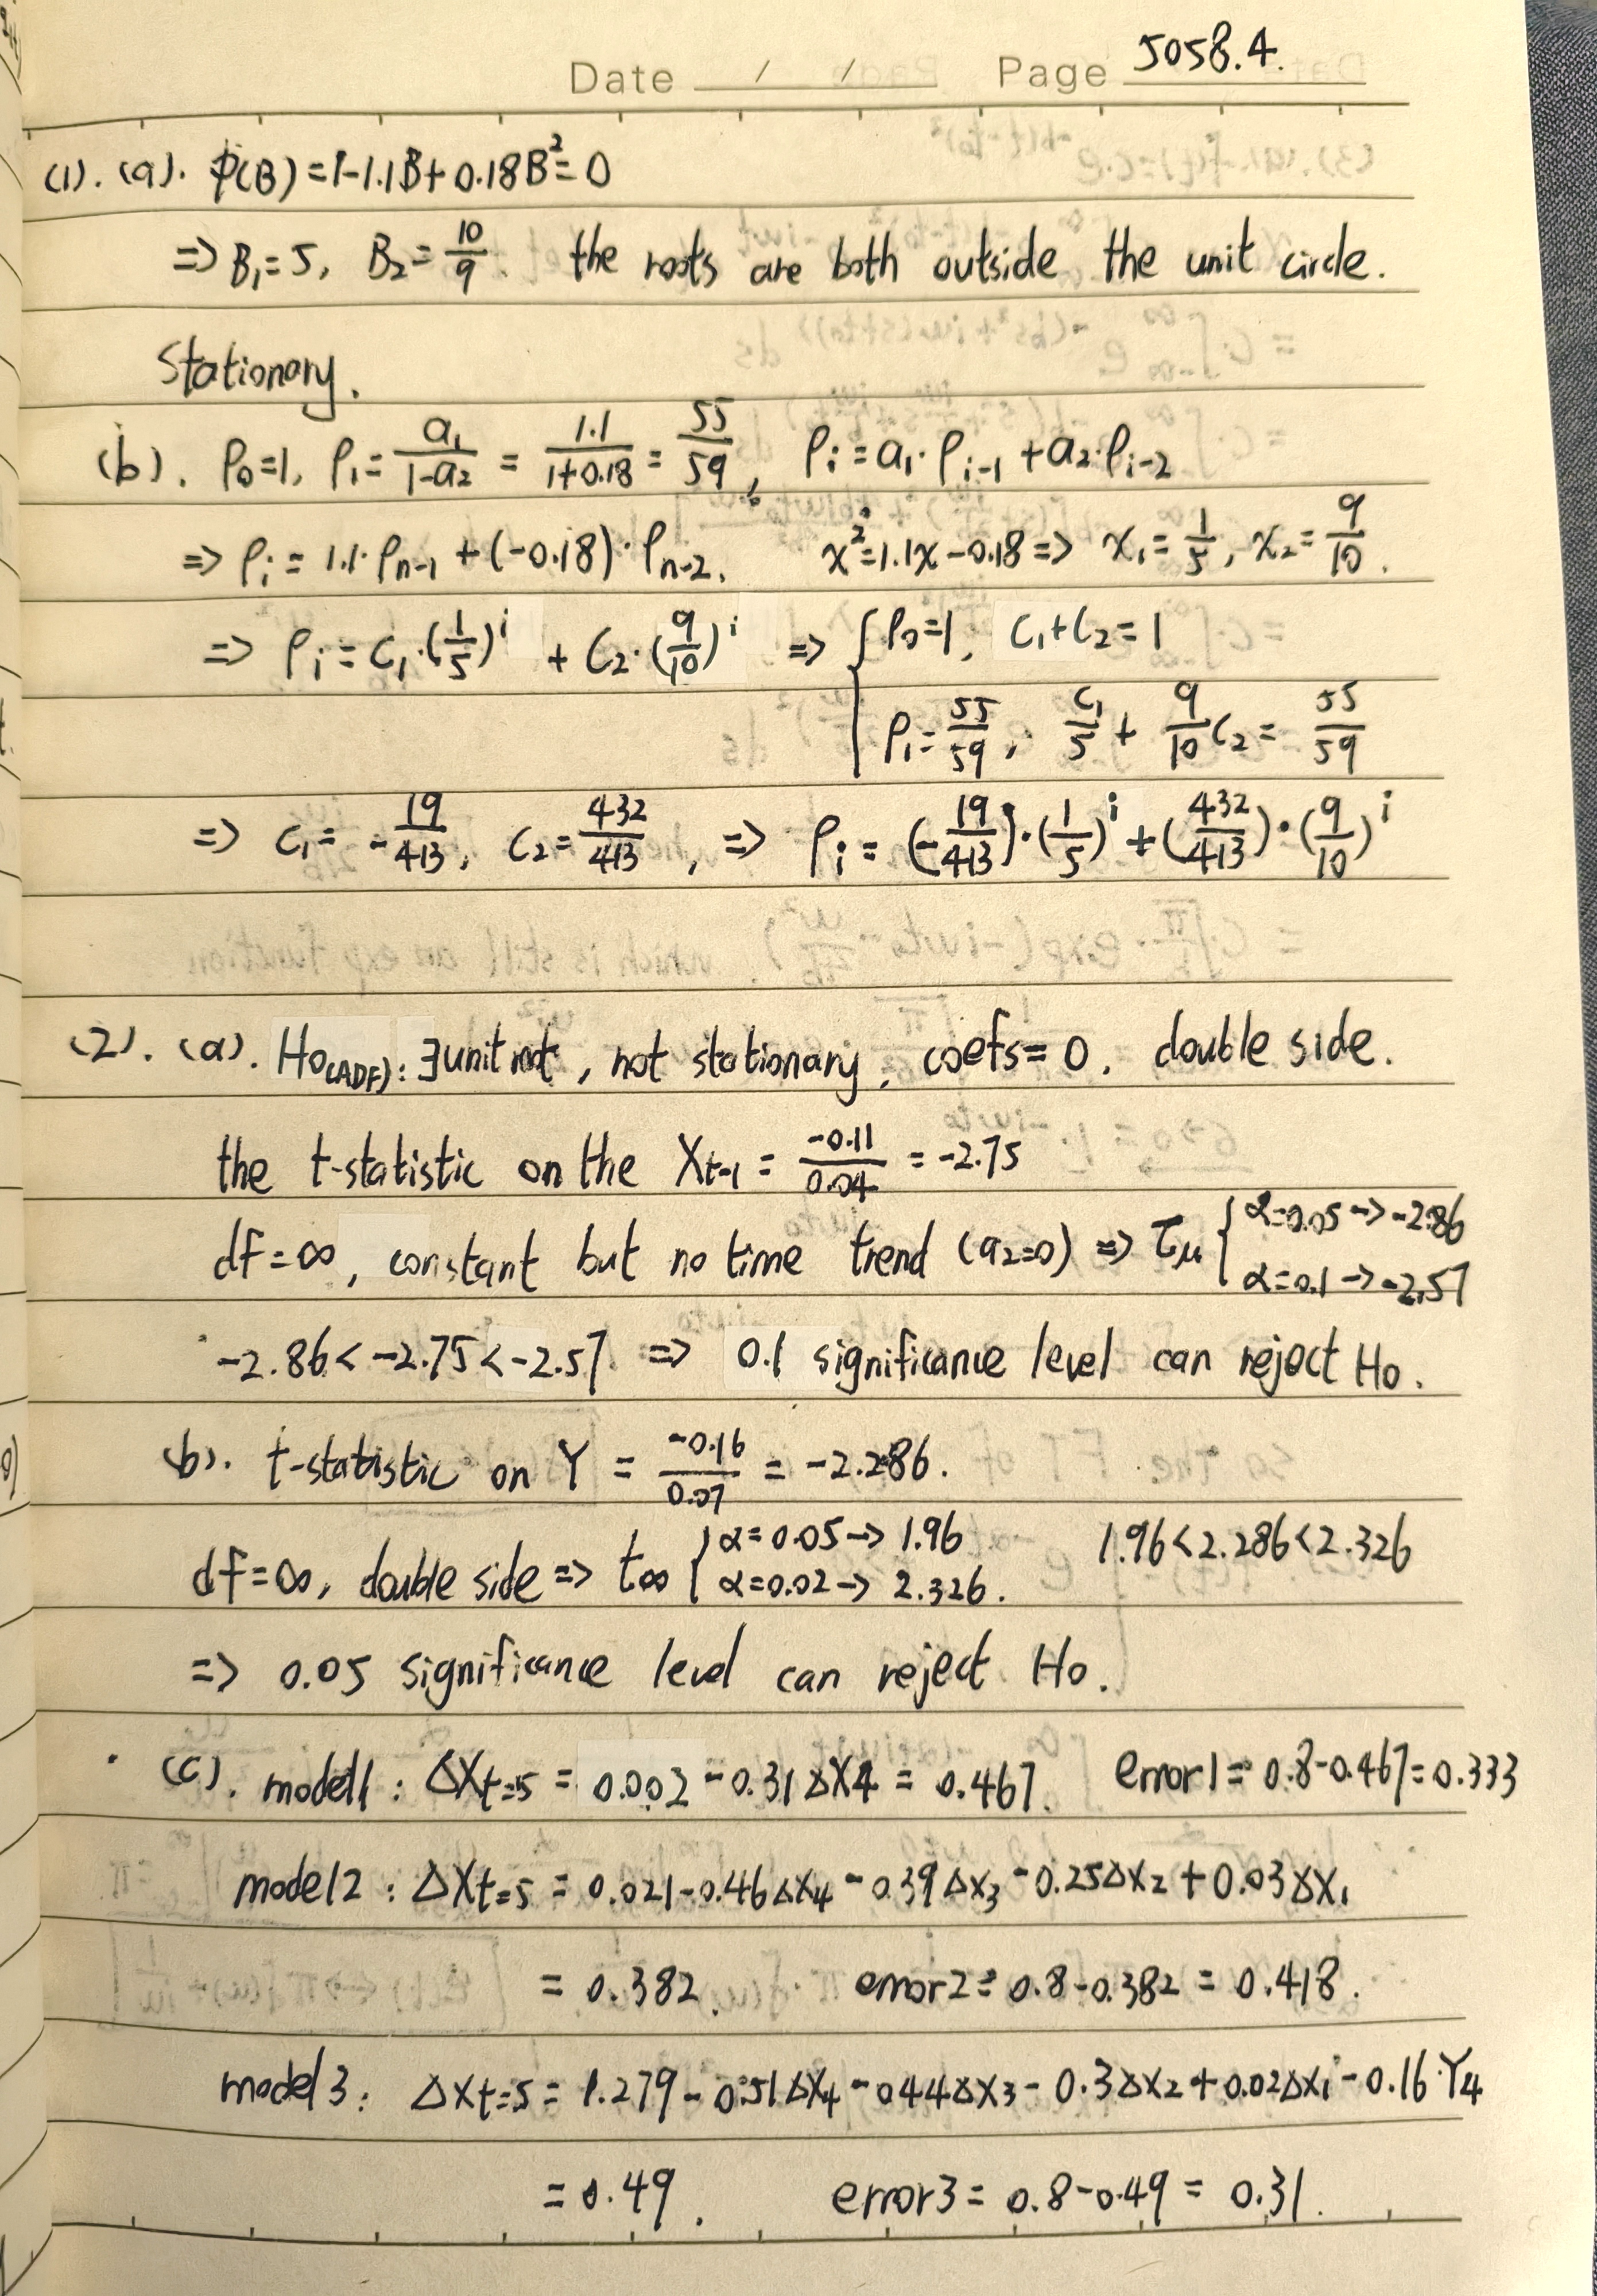 Date / / Page 5058.4.
(1). (a). φ(B)=1-1.1B+0.18B²=0
=> B₁=5, B₂=10/9. the roots are both outside the unit circle.
Stationary.
(b). ρ₀=1, ρ₁=a₁/(1-a₂) = 1.1/(1+0.18) = 55/59, ρᵢ=a₁·ρᵢ₋₁+a₂·ρᵢ₋₂
=> ρᵢ = 1.1·ρₙ₋₁ + (-0.18)·ρₙ₋₂. x²=1.1x-0.18 => x₁=1/5, x₂=9/10.
=> ρᵢ = C₁·(1/5)ⁱ + C₂·(9/10)ⁱ => { ρ₀=1, C₁+C₂=1
ρ₁=55/59, C₁/5 + 9/10 C₂ = 55/59
=> C₁ = -19/413, C₂=432/413, => ρᵢ = (-19/413)·(1/5)ⁱ + (432/413)·(9/10)ⁱ
(2). (a). H₀(ADF): ∃unit root, not stationary, coefs=0, double side.
the t-statistic on the Xₜ₋₁ = -0.11/0.04 = -2.75
df=∞, constant but no time trend (a₂=0) => τμ { α=0.05 -> -2.86
α=0.1 -> -2.57
-2.86 < -2.75 < -2.57 => 0.1 significance level can reject H₀.
(b). t-statistic on Y = -0.16/0.07 = -2.286.
df=∞, double side => t∞ { α=0.05 -> 1.96 1.96<2.286<2.326
α=0.02 -> 2.326.
=> 0.05 significance level can reject H₀.
(c). model1: ΔXt=5 = 0.002 - 0.31ΔX4 = 0.467. error1 = 0.8-0.467=0.333
model2: ΔXt=5 = 0.021-0.46ΔX₄-0.39ΔX₃-0.25ΔX₂+0.03ΔX₁
= 0.382. error2 = 0.8-0.382 = 0.418.
model3: ΔXt=5 = 1.279-0.51ΔX₄-0.44ΔX₃-0.3ΔX₂+0.02ΔX₁-0.16·Y₄
= 0.49. error3 = 0.8-0.49 = 0.31.